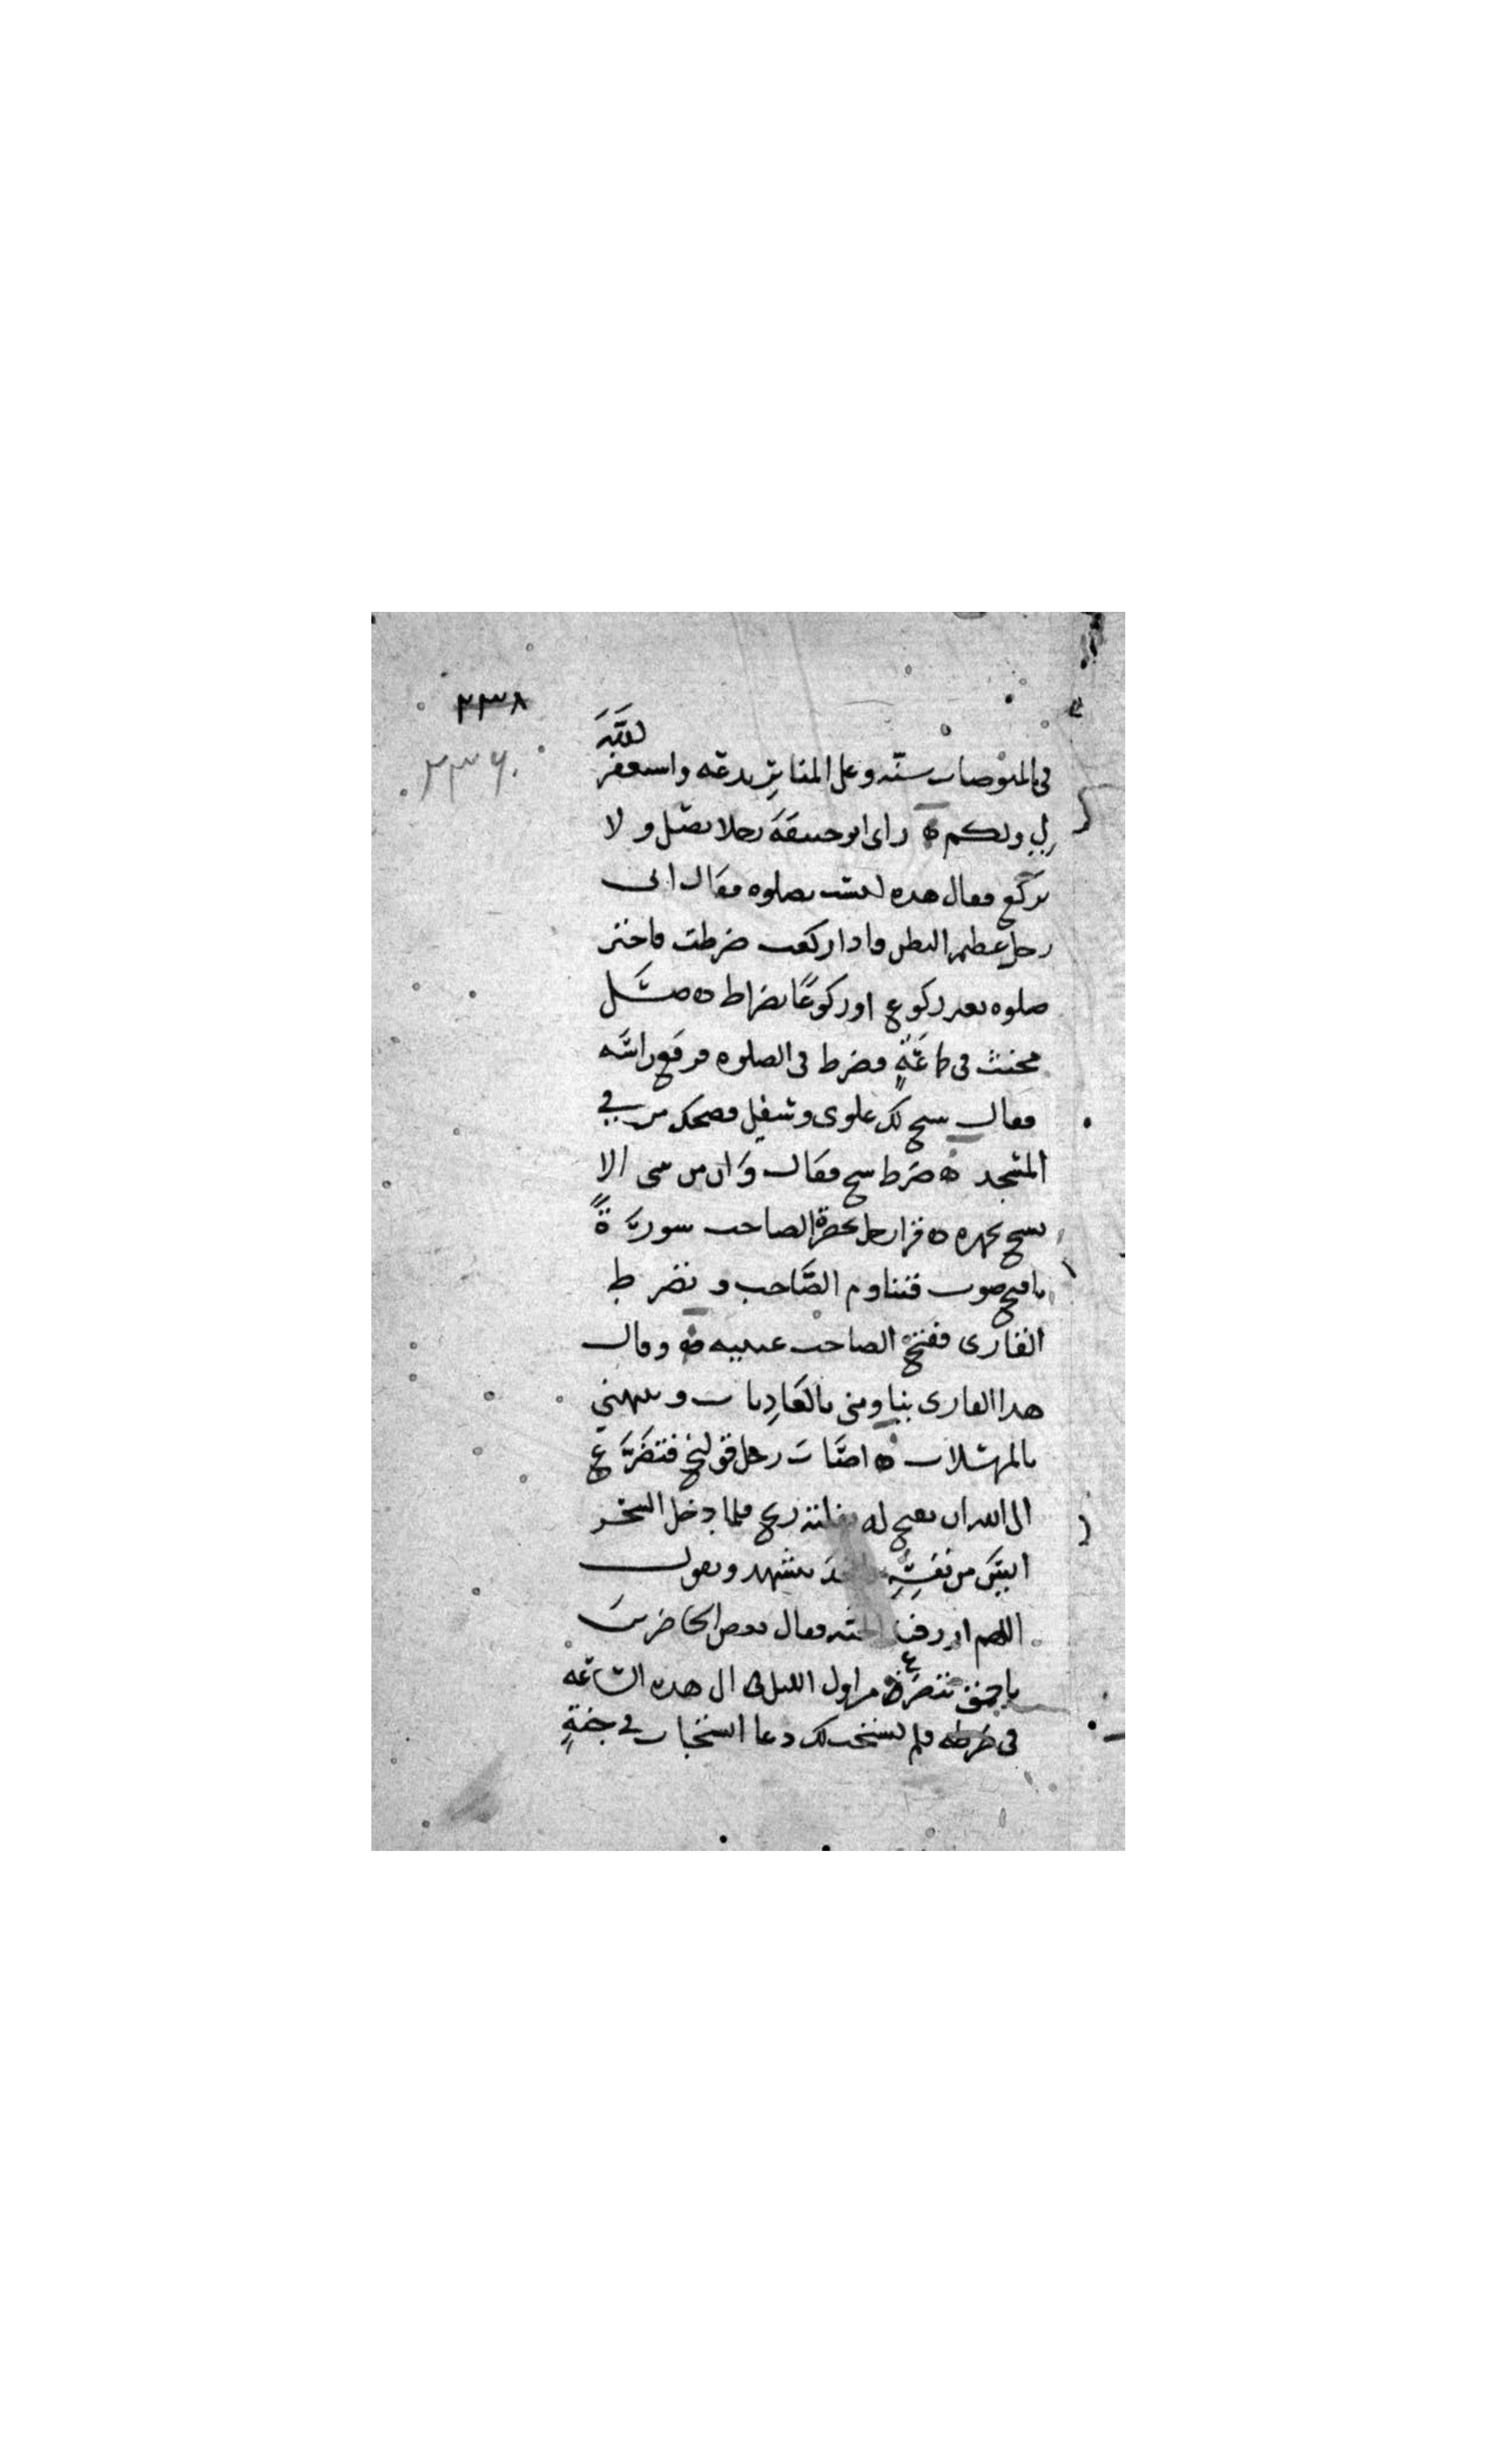 ٢٣٨
٢٣٦
الله
فى المتوضات سنه وعلى المنابر بدعه واستغفر
لى ولكم ه راى ابو حنيفه رجلا يصلى ولا
يركع فقال هذه ليست بصلوه فقال انى
رجل عظيم البطن واذا ركعت ضرطت فاختر
صلوه بغير ركوع او ركوعًا بضراط ه صلى
مخنث فى جماعةٍ فضرط فى الصلوه فرفع راسه
فقال سبح لك علوى وسفلى فضحك من فى
المسجد ه ضرط شيخ فقال وان من شى الا
يسبح بحمده ه قرا رجل بحضرة الصاحب سورةً
باقبح صوت فتناوم الصَّاحب وتضرط
القارى ففتح الصاحب عينيه وقال
هذا القارى ينيمنى بالعاديات وينبهنى
بالمرسلات ه اصاب رجل قولنج فتضرَّع
الى الله ان يفتح له ريح فلما دخل السحر
ايس من نفسِهِ يتشهد ويقول
اللهم ارزقنى الجنه فقال بعض الحاضرين
يا احمق تتضرع من اول الليل الى هذه الساعه
فى ضرطه فلم يستجب لك دعا استجاب فى جنةٍ